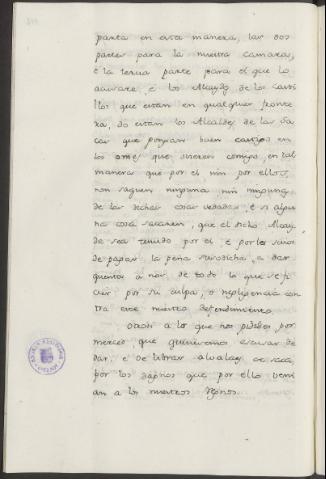 parta en esta manera, las dos
partes para la nuestra camara,
e la tercia parte para el que lo
acusare, e los Alcaydes de los casti
llos que estan en qualquier fronte
ra, do estan los Alcaldes de las sa
cas que pongan buen castigo en
los omes que ovieren consigo, en tal
manera que por el nin por ellos,
non saquen ninguna nin ningunas
de las dichas cosas vedadas, e si algu
na cosa sacaren, que el dicho Alcay
de sea tenudo por el, e por los suyos
de pagar la pena susodicha, e dar
quenta a nos de todo lo que se fi
cier por su culpa, o negligencia con
tra este nuestro defendimiento.
Otrosi a lo que nos pidieron por
merced, que quisieramos escusar de
dar, e de librar alvalas de saca,
por los daños que por ello veni
an a los nuestros Regnos.